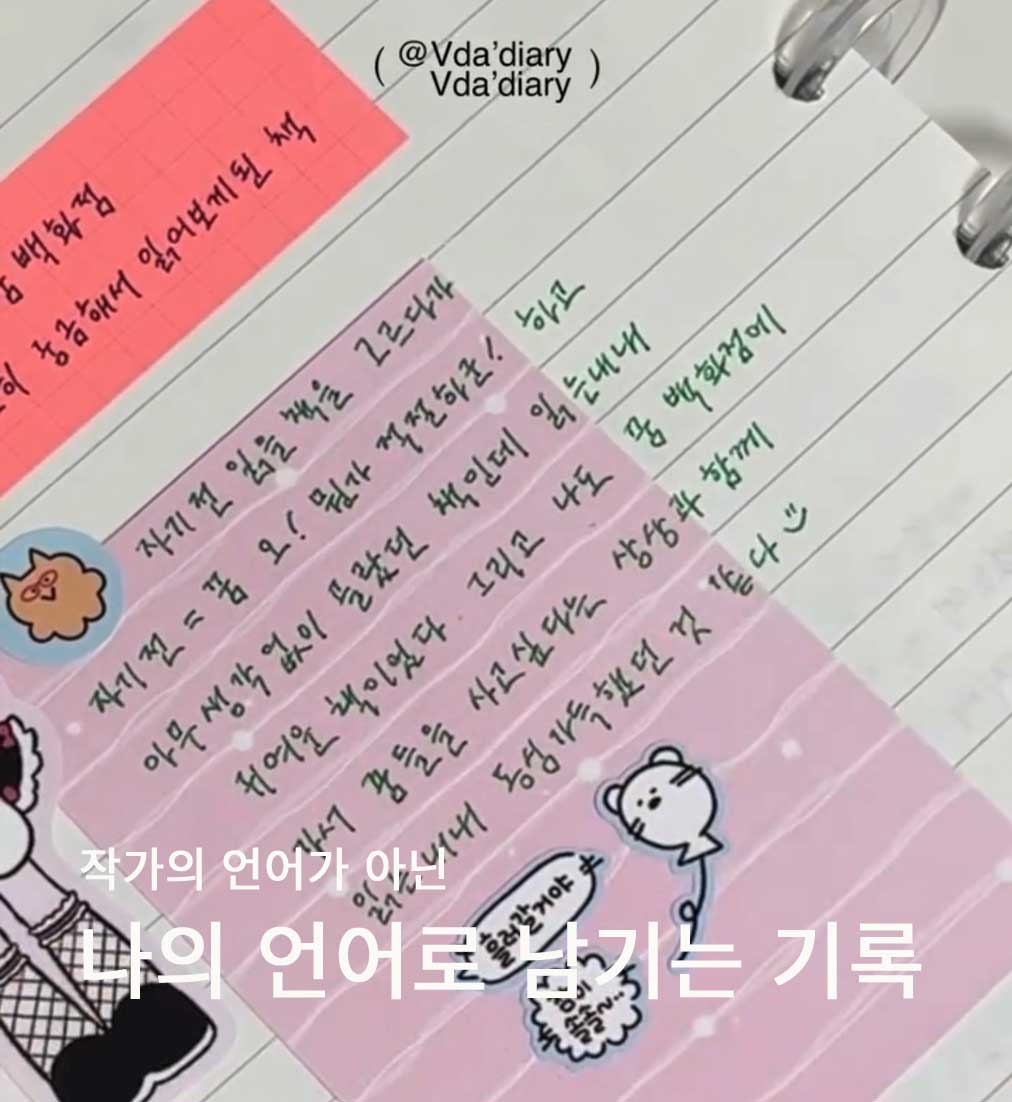 ( @Vda’diary
Vda’diary )
백화점
궁금해서 읽어보게된 책
자기전 읽을 책을 고르다가
자기전 = 꿈 오! 뭔가 적절하군! 하고
아무 생각 없이 골랐던 책인데 읽는내내
귀여운 책이었다 그리고 나도 꿈 백화점에
가서 꿈들을 사고싶다는 상상과 함께
읽는내내 동심가득했던 것 같다
흘러갈거야
작가의 언어가 아닌
나의 언어로 남기는 기록